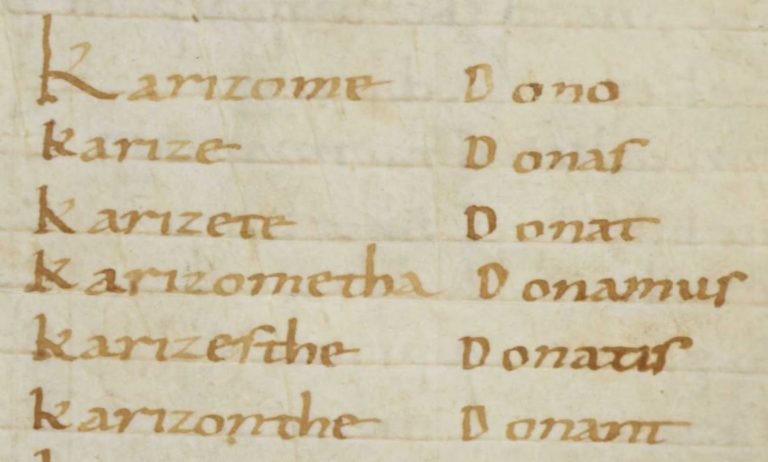 Karizome Dono
karize Donas
karizete Donat
karizometha Donamus
karizesthe Donatis
karizonthe Donant